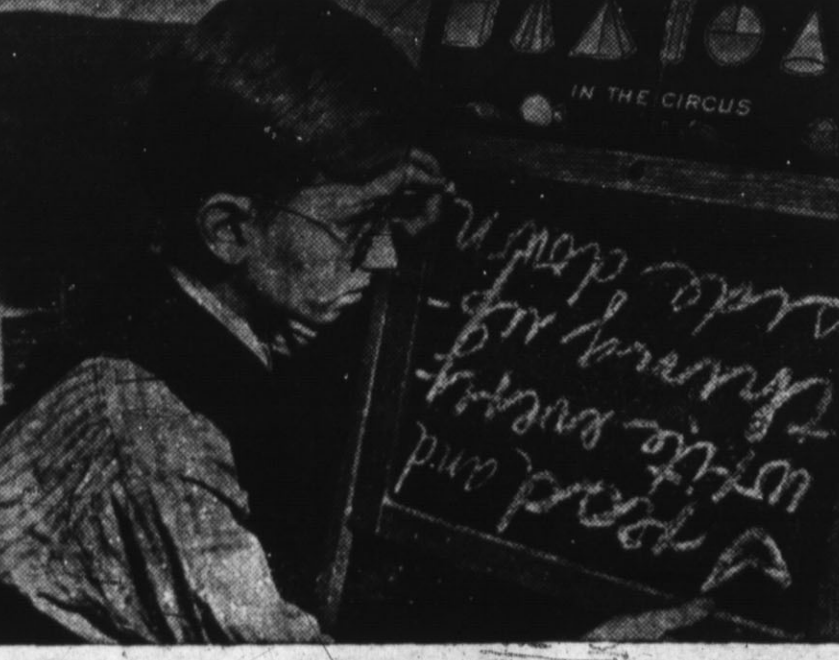 IN THE CIRCUS
I read and
write every-
thing up-
side down